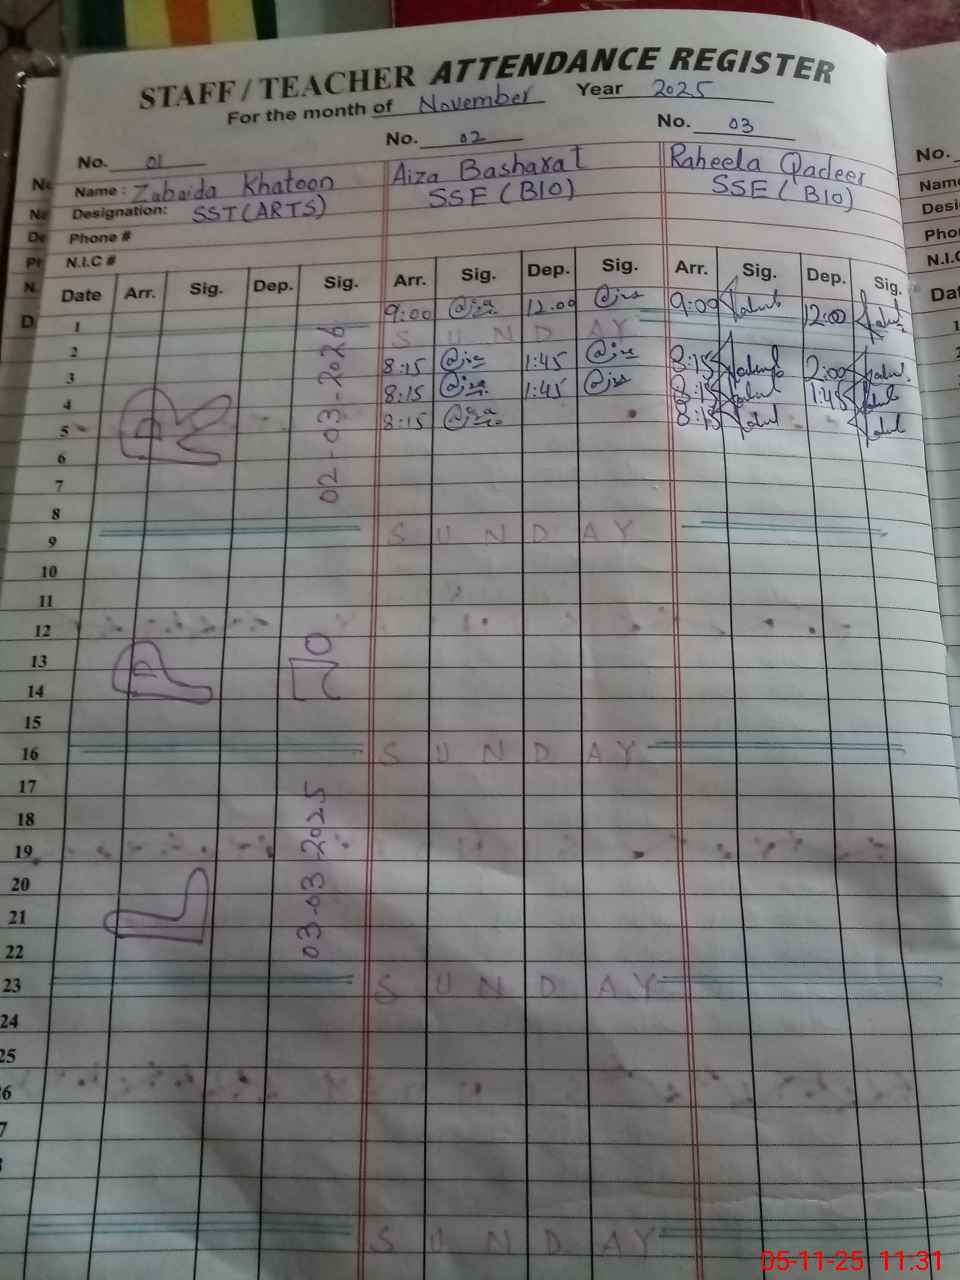 STAFF / TEACHER ATTENDANCE REGISTER
For the month of November Year 2025
No. 01 No. 02 No. 03
Name : Zubaida Khatoon Aiza Basharat Raheela Qadeer
Designation: SST (ARTS) SSE (BIO) SSE (BIO)
Phone #
N.I.C #
Date Arr. Sig. Dep. Sig. Arr. Sig. Dep. Sig. Arr. Sig. Dep. Sig.
1 9:00 12.00 9:00 12:00
2 SUNDAY
3 8:15 1:45 8:15 2:00
4 8:15 1:45 8:15 1:45
5 8:15 8:15
6
7
8
9 SUNDAY
10
11
12
13
14
15
16 SUNDAY
17
18
19
20
21
22
23 SUNDAY
24
25
26
SUNDAY
02-03-2026
TO
03-03-2025
No.
Name
Desi
Pho
N.I.C
Dat
05-11-25 11.31